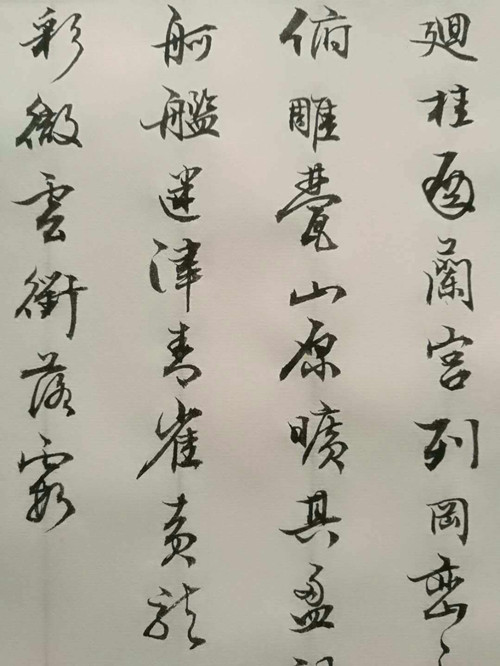 廻桂殿蘭宮列岡巒
俯雕甍山原曠其盈
舸艦迷津青雀黄龍
彩徹雲衢落霞